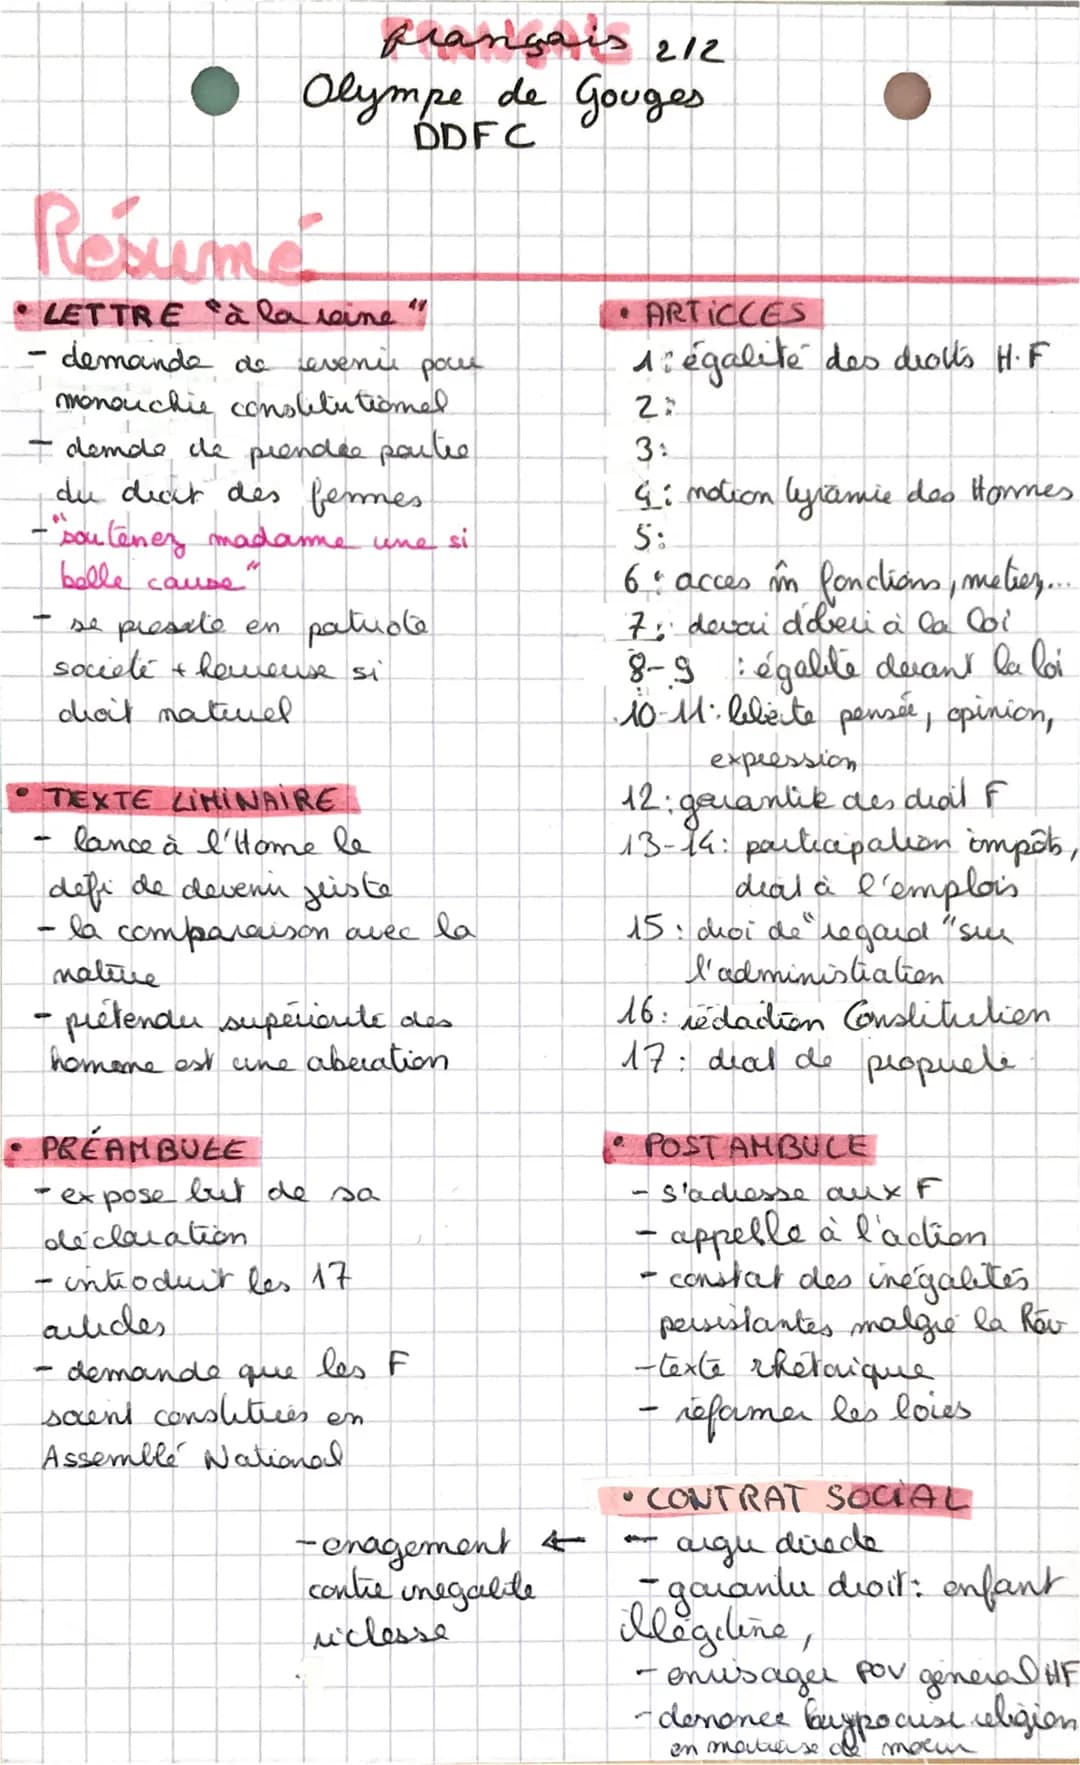 Français 2/2
Olympe de Gouges
DDFC
Résumé
• LETTRE "à la reine"
- demande de revenir pour
monarchie constitutionnel
- demde de prendre partie
du droit des femmes
- "soutenez madame une si
belle cause"
- se presete en patriote
societé + heureuse si
droit naturel
• TEXTE LIMINAIRE
- lance à l'Home le
défi de devenir juiste
- la comparaison avec la
nature
- prétendu supériorite des
homme est une aberation
• PRÉAMBULE
- expose but de sa
déclaration
- introduit les 17
articles
- demande que les F
soient constituées en
Assemblé National
• ARTICLES
1: égalité des droits H.F
2:
3:
4: notion tyramie des Hommes
5:
6: acces in fonctions, metiez...
7: devoir d'obeir à la loi
8-9 : égalité devant la loi
10-11: liberte pensée, opinion,
expression
12: garantie des droit F
13-14: participation impôts,
droit à l'emplois
15: droi de "regard" sur
l'administration
16: rédaction Constitution
17: droit de propriete
• POSTAMBULE
- s'adresse aux F
- appelle à l'action
- constat des inégalités
persistantes malgré la Rév
- texte rhétorique
- réformer les loies
• CONTRAT SOCIAL
← - argu directe
- enagement
contre inegalite
richesse
- garantir droit: enfant
illégitine,
- envisager POV général HF
- denonce huypocrise religion
en matière de moeur